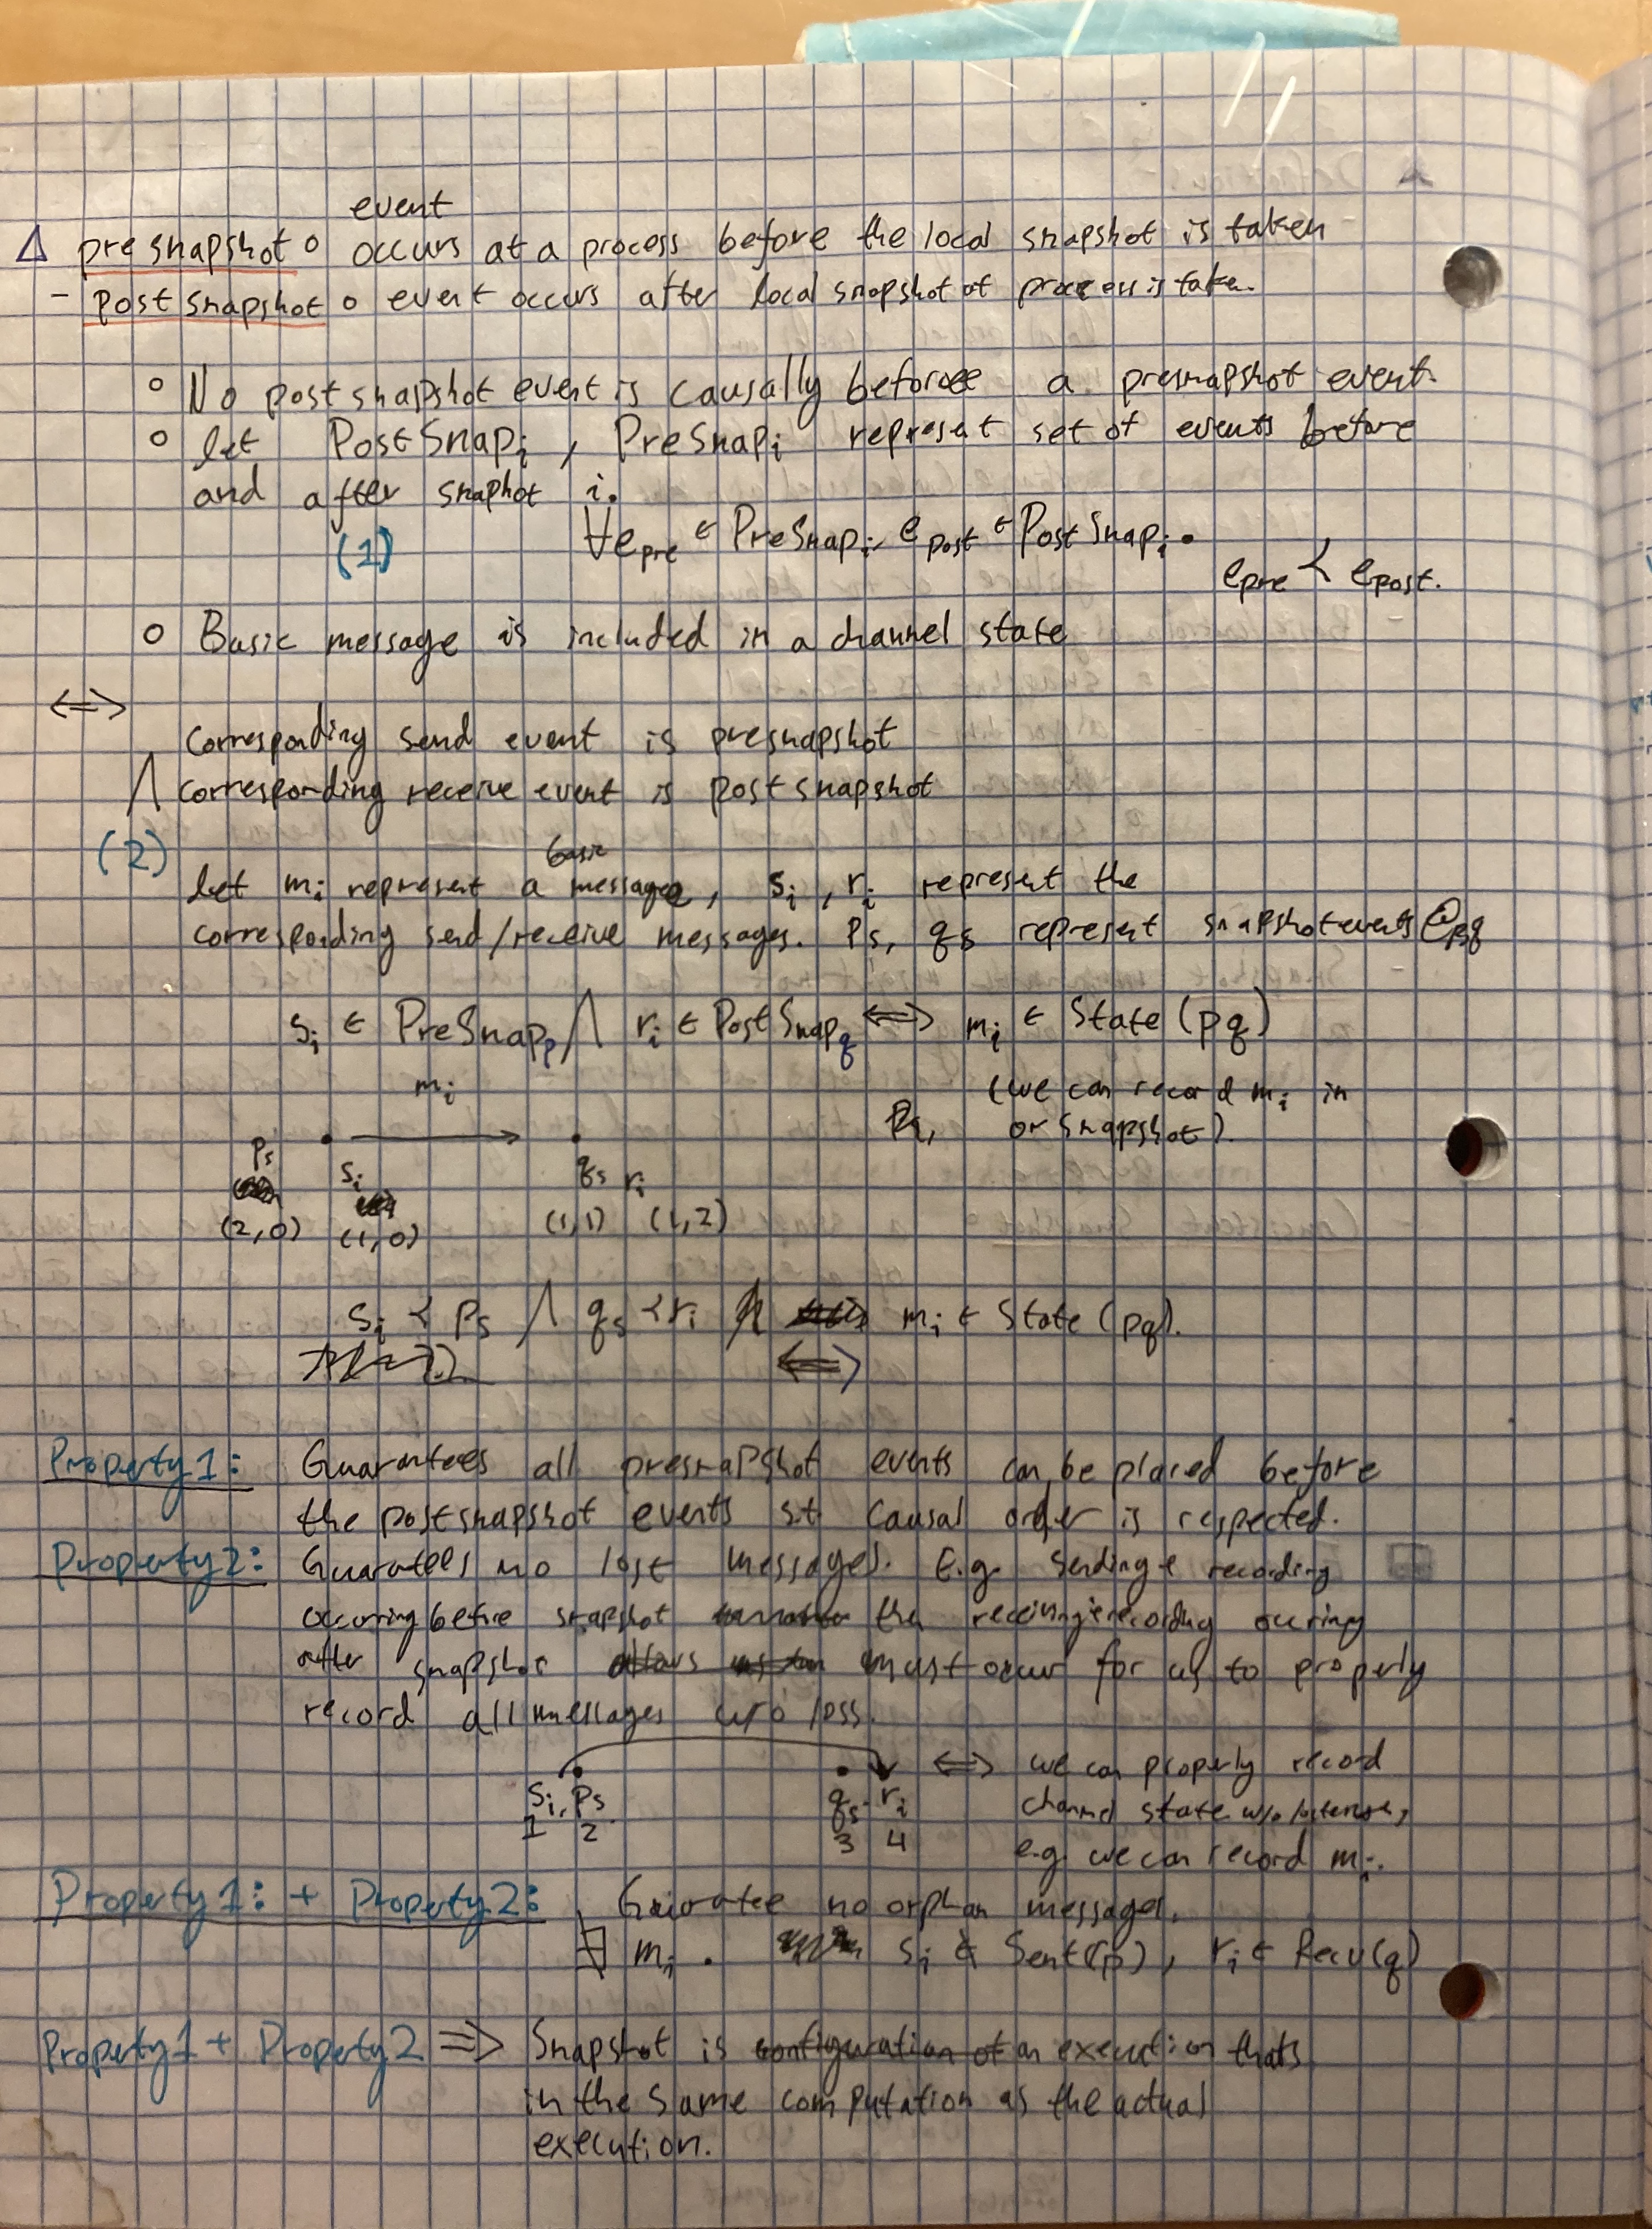 event
Δ presnapshot o occurs at a process before the local snapshot is taken
- postsnapshot o event occurs after local snapshot at process is taken.
o No postsnapshot event is causally before a presnapshot event.
o let PostSnap_i, PreSnap_i represent set of events before
and after snaphot i.
(1) ∀e_pre ∈ PreSnap_i, e_post ∈ PostSnap_i.
e_pre ≺ e_post.
o Basic message is included in a channel state
⟺
corresponding send event is presnapshot
∧ corresponding receive event is postsnapshot
(2)
basic
let m_i represent a message, s_i, r_i represent the
corresponding send/receive messages. P_s, q_s represent snapshot events @p,q
s_i ∈ PreSnap_p ∧ r_i ∈ PostSnap_q ⟺ m_i ∈ State (pq)
m_i (we can record m_i in
or snapshot).
P_s s_i q_s r_i
(2,0) (1,0) (1,1) (1,2)
s_i ≺ P_s ∧ q_s ≺ r_i m_i ∈ State (pq).
⟺
Property 1: Guarantees all presnapshot events can be placed before
the postsnapshot events st causal order is respected.
Property 2: Guaratees no lost messages. E.g. sending & recording
occuring before snapshot the receiving & recording occuring
after snapshot must occur for us to properly
record all messages w/o loss.
⟺ we can properly record
S_i, P_s q_s r_i channel state w/o
1 2 3 4 e.g. we can record m_i.
Property 1: + Property 2: Guaratee no orphan messages.
∀ m_i . s_i ∈ Sent(p), r_i ∈ Recv(q)
Property 1 + Property 2 ⟹ Snapshot is configuration of an execution thats
in the same computation as the actual
execution.